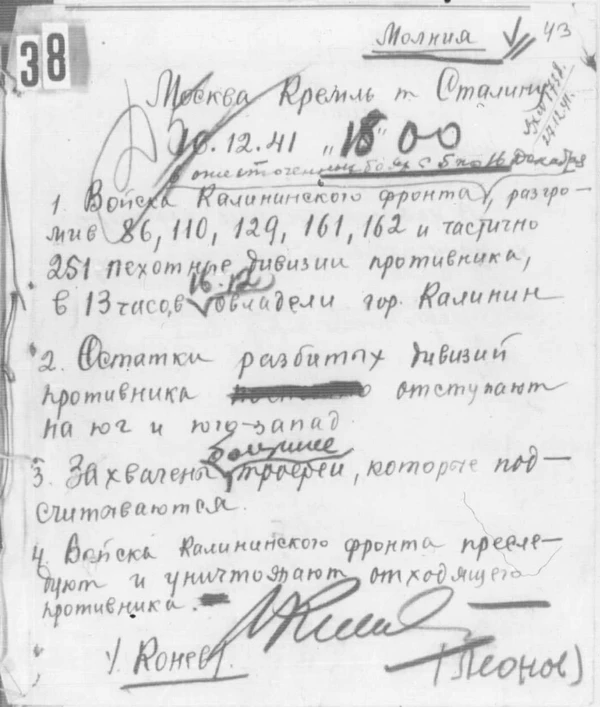 38
Молния
43
Москва Кремль т. Сталину
16.12.41 „18" 00
в ожесточенных боях с 5 по 16 декабря
1. Войска Калининского фронта, разгро-
мив 86, 110, 129, 161, 162 и частично
251 пехотные дивизии противника,
16.12
в 13 часов овладели гор. Калинин
2. Остатки разбитых дивизий
противника отступают
на юг и юго-запад.
большие
3. Захвачены трофеи, которые под-
считываются.
4. Войска Калининского фронта пресле-
дуют и уничтожают отходящего
противника.
Конев.
(Леонов)